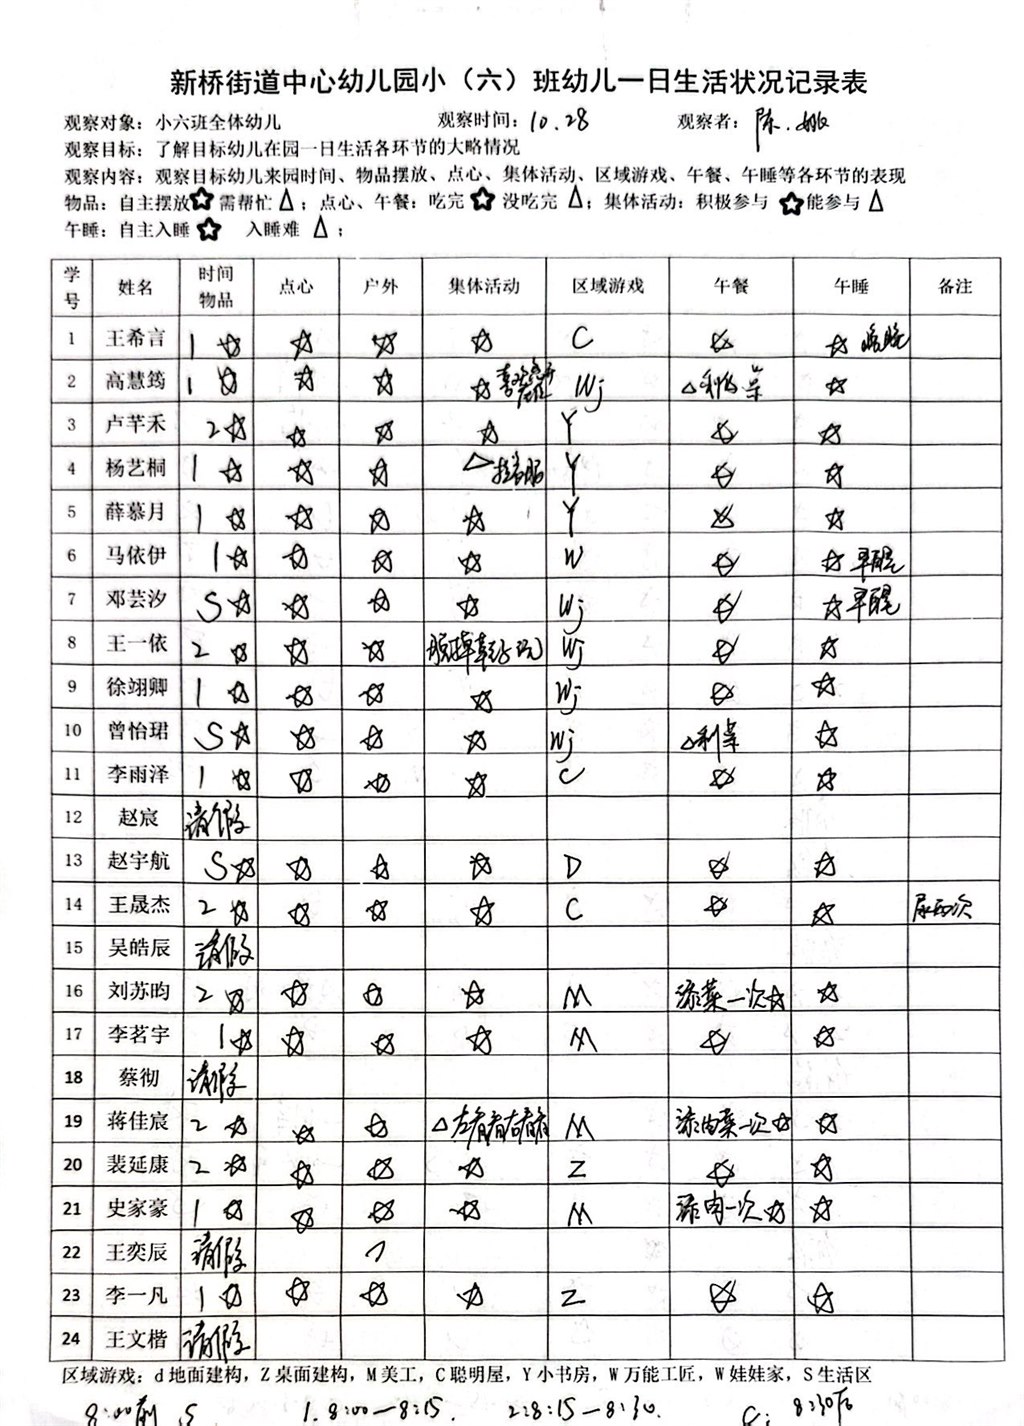 新桥街道中心幼儿园小（六）班幼儿一日生活状况记录表
观察对象：小六班全体幼儿 观察时间：10.28 观察者：陈.姚
观察目标：了解目标幼儿在园一日生活各环节的大略情况
观察内容：观察目标幼儿来园时间、物品摆放、点心、集体活动、区域游戏、午餐、午睡等各环节的表现
物品：自主摆放☆需帮忙△；点心、午餐：吃完☆没吃完△；集体活动：积极参与☆能参与△
午睡：自主入睡☆ 入睡难△；
学号 姓名 时间物品 点心 户外 集体活动 区域游戏 午餐 午睡 备注
1 王希言 1 ☆ ☆ ☆ ☆ C ☆ ☆
2 高慧筠 1 ☆ ☆ ☆ ☆ Wj △
☆
3 卢芊禾 2 ☆ ☆ ☆ ☆ Y ☆ ☆
4 杨艺桐 1 ☆ ☆ ☆ △ Y ☆ ☆
5 薛慕月 1 ☆ ☆ ☆ ☆ Y ☆ ☆
6 马依伊 1 ☆ ☆ ☆ ☆ W ☆ ☆早醒
7 邓芸汐 S ☆ ☆ ☆ ☆ Wj ☆ ☆早醒
8 王一依 2 ☆ ☆ ☆ Wj ☆ ☆
9 徐翊卿 1 ☆ ☆ ☆ ☆ Wj ☆ ☆
10 曾怡珺 S ☆ ☆ ☆ ☆ Wj △剩菜 ☆
11 李雨泽 1 ☆ ☆ ☆ ☆ C ☆ ☆
12 赵宸 请假
13 赵宇航 S ☆ ☆ ☆ ☆ D ☆ ☆
14 王晟杰 2 ☆ ☆ ☆ ☆ C ☆ ☆ 尿两次
15 吴皓辰 请假
16 刘苏昀 2 ☆ ☆ ☆ ☆ M 添菜一次☆ ☆
17 李茗宇 1 ☆ ☆ ☆ ☆ M ☆ ☆
18 蔡彻 请假
19 蒋佳宸 2 ☆ ☆ ☆ △左看看右看看 M 添肉菜一次☆ ☆
20 裴延康 2 ☆ ☆ ☆ ☆ Z ☆ ☆
21 史家豪 1 ☆ ☆ ☆ ☆ M 添肉一次☆ ☆
22 王奕辰 请假
23 李一凡 1 ☆ ☆ ☆ ☆ Z ☆ ☆
24 王文楷 请假
区域游戏：d地面建构，Z桌面建构，M美工，C聪明屋，Y小书房，W万能工匠，W娃娃家，S生活区
8:00前 S 1. 8:00—8:15. 2:8:15—8:30. C: 8:30后